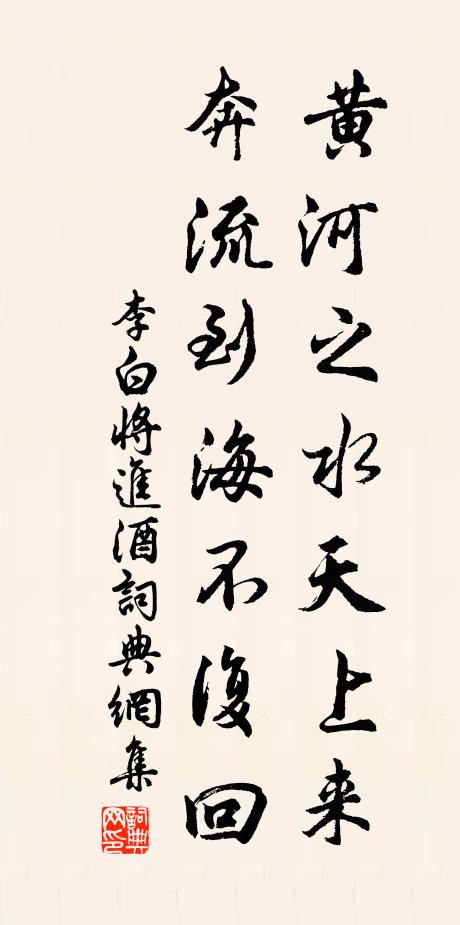 黄河之水天上来
奔流到海不復回
李白將進酒詞典網集
詞典网印